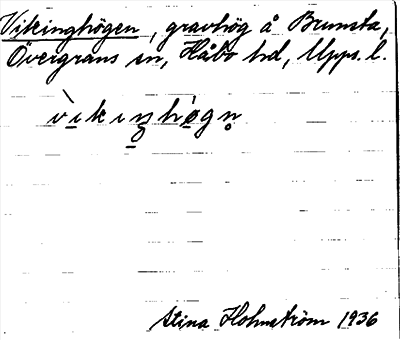 Vikinghögen, gravhög å Brunsta,
Övergrans sn, Håbo hd, Upps. l.
vìkiŋhö́gn̥
Stina Holmström 1936